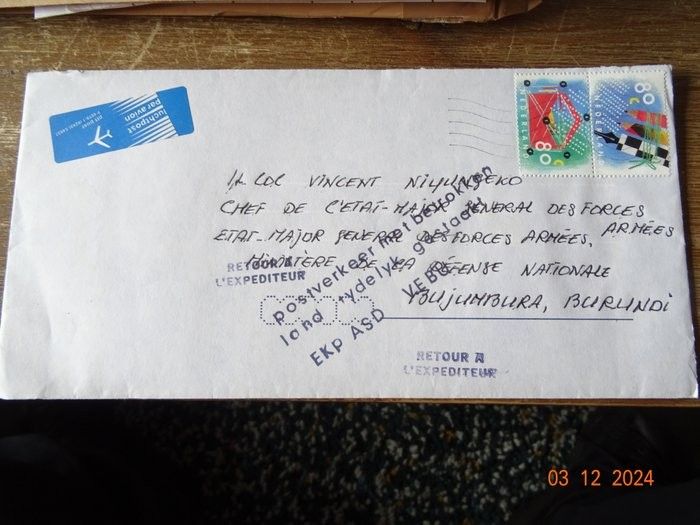 luchtpost
par avion
NEDERLAND
80
NEDERLAND
80
LT COL VINCENT NIYUNGEKO
CHEF DE L'ETAT-MAJOR GENERAL DES FORCES ARMÉES
ETAT-MAJOR GENERAL DES FORCES ARMÉES,
MINISTÈRE DE LA DÉFENSE NATIONALE
BUJUMBURA, BURUNDI
RETOUR A
L'EXPEDITEUR
postverkeer met betrokken
land tydelyk gestaakt
EKP ASD
RETOUR A
L'EXPEDITEUR
03 12 2024